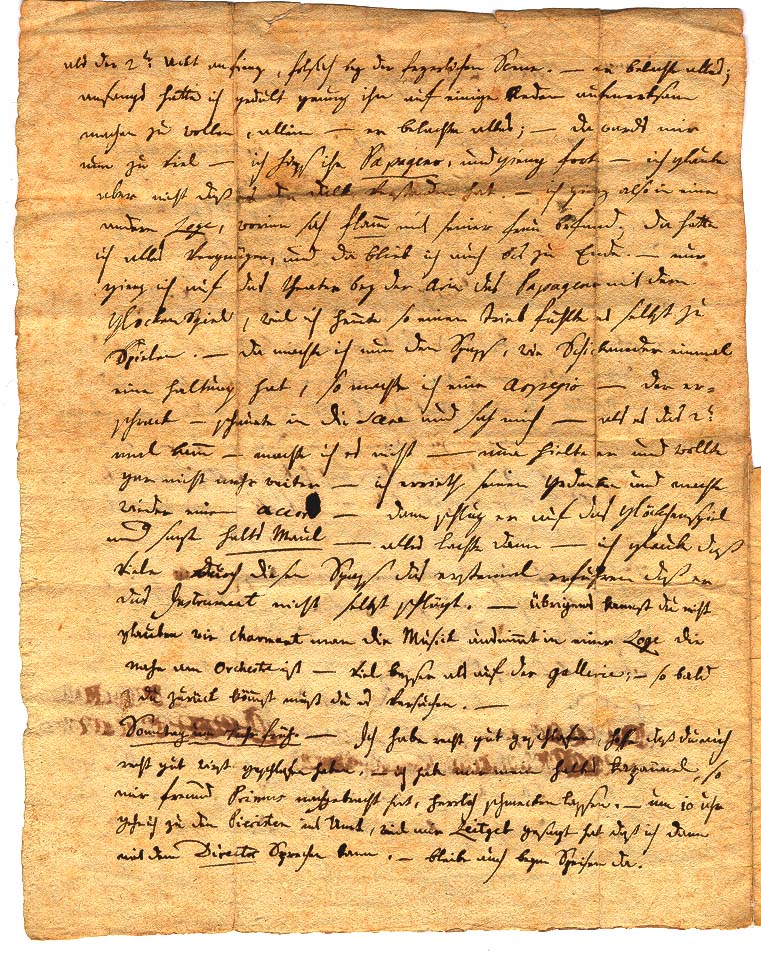 als der 2:te Ackt anfieng, folglich bey der feyerlichen Scene. — er belachte alles;
anfangs hatte ich gedult genug ihn auf einige Reden aufmerksam
machen zu wollen, allein — er belachte alles; — da wards mir
nun zu viel — ich hiess ihn Papageno, und gieng fort — ich glaube
aber nicht daß es der dalk verstanden hat. — ich gieng also in eine
andere Loge, worinn sich flamm mit seiner frau befand; da hatte
ich alles Vergnügen, und da blieb ich auch bis zu Ende. — nur
gieng ich auf das theater bey der Arie des Papageno mit dem
GlockenSpiel, weil ich heute so einen trieb fühlte es selbst zu
Spielen. — da machte ich nun den Spass, wie Schickaneder einmal
eine haltung hat, so machte ich eine Arpegio — der er=
schrack — schauete in die Scene und sah mich — als es das 2:te
mal kamm — machte ich es nicht — nun hielte er und wollte
gar nicht mehr weiter — ich errieth seinen Gedanken und machte
wieder einen Accord — dann schlug er auf das Glöckchenspiel
und sagte halts Maul — alles lachte dann — ich glaube daß
viele durch diesen Spass das erstemal erfuhren daß er
das Instrument nicht selbst schlägt. — übrigens kannst du nicht
glauben wie charmant man die Musick ausnimmt in einer Loge die
nahe am Orchestre ist — viel besser als auf der gallerie; — so bald
du zurück kömmst must du es versuchen. —
Sonntag um 7 uhr frühe — Ich habe recht gut geschlafen, hoffe daß du auch
recht gut wirst geschlafen haben. — ich habe mir mein halbes kapaundel, so
mir freund Primus nachgebracht hat, herrlich schmecken lassen. — um 10 uhr
gehe ich zu den Piaristen ins Amt, weil mir Leitgeb gesagt hat daß ich dann
mit dem Director Sprechen kann. — bleibe auch beym Speisen da.